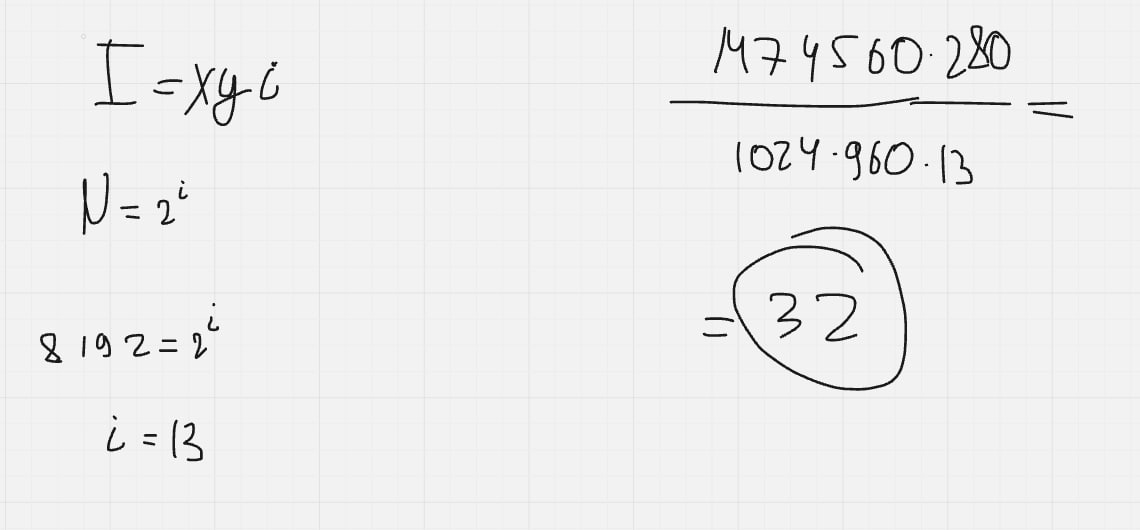 I = xyi
N = 2^i
8192 = 2^i
i = 13
1474560·280
1024·960·13
=
= 32